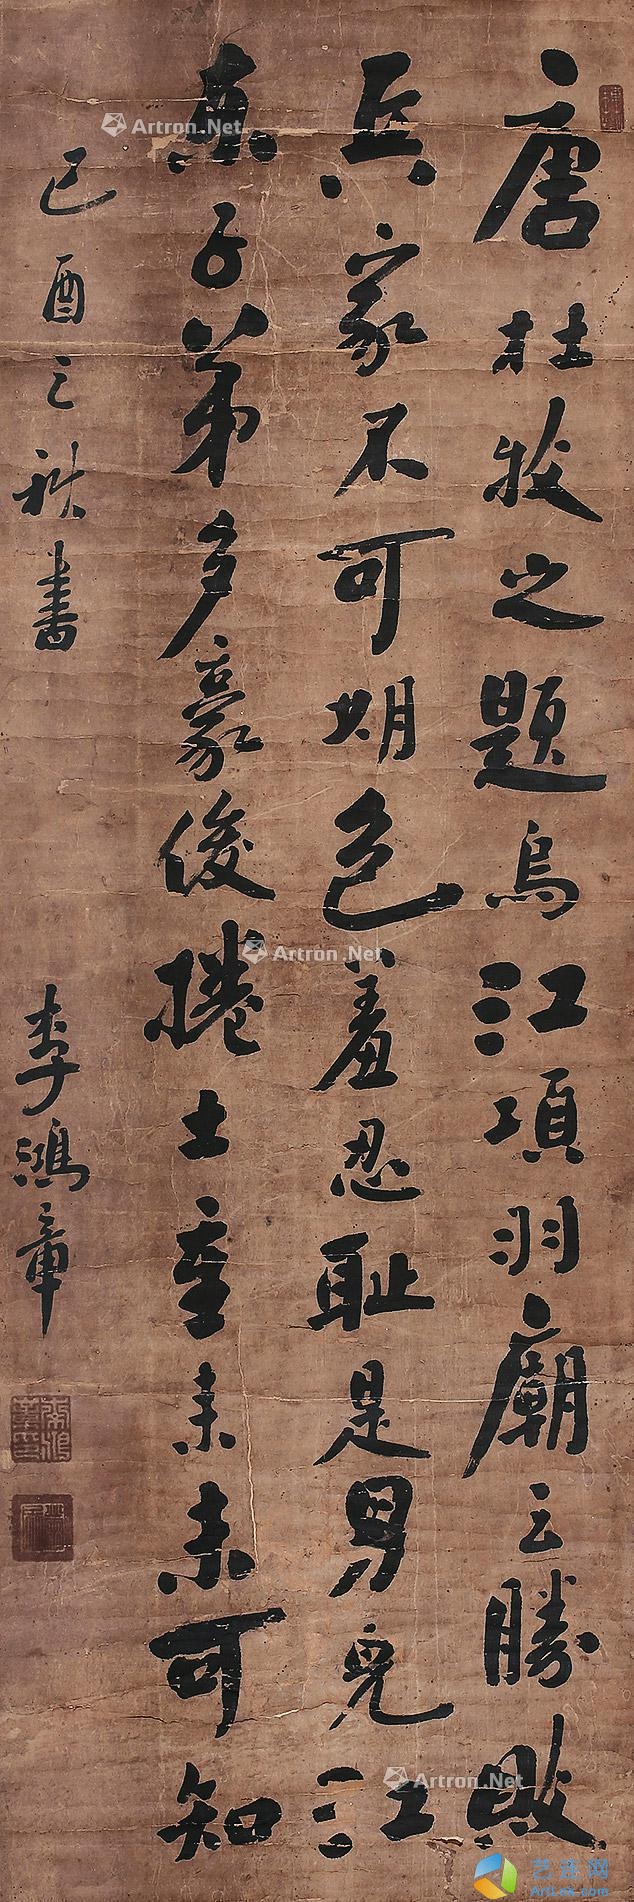 唐杜牧之題烏江項羽廟云勝敗
兵家不可期包羞忍耻是男兒江
東子弟多豪俊捲土重来未可知
己酉之秋書
李鴻章
Artron.Net
Artron.Net
Artron.Net